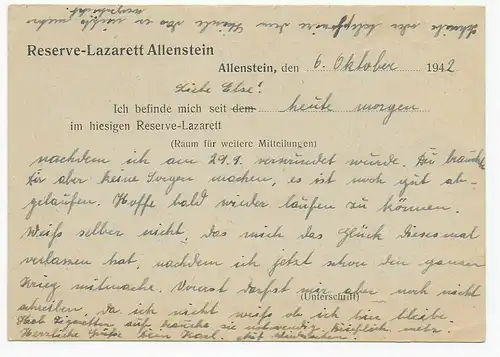 Schreibe oder telephoniere dem Heinle das er nicht mehr
Reserve-Lazarett Allenstein
Allenstein, den 6. Oktober 1942
Liebe Else!
Ich befinde mich seit dem heute morgen
im hiesigen Reserve-Lazarett
(Raum für weitere Mitteilungen)
nachdem ich am 29.9. verwundet wurde. Du brauchst
Dir aber keine Sorgen machen, es ist noch gut ab-
gelaufen. Hoffe bald wieder laufen zu können.
Weiß selber nicht, das mich das Glück diesesmal
verlassen hat, nachdem ich jetzt schon den ganzen
Krieg mitmache. Vorerst darfst mir aber noch nicht
(Unterschrift)
schreiben, da ich nicht weiß ob ich hier bleibe.
Hab Zigaretten auf, brauche sie notwendig
Herzliche Grüße Dein Karl.